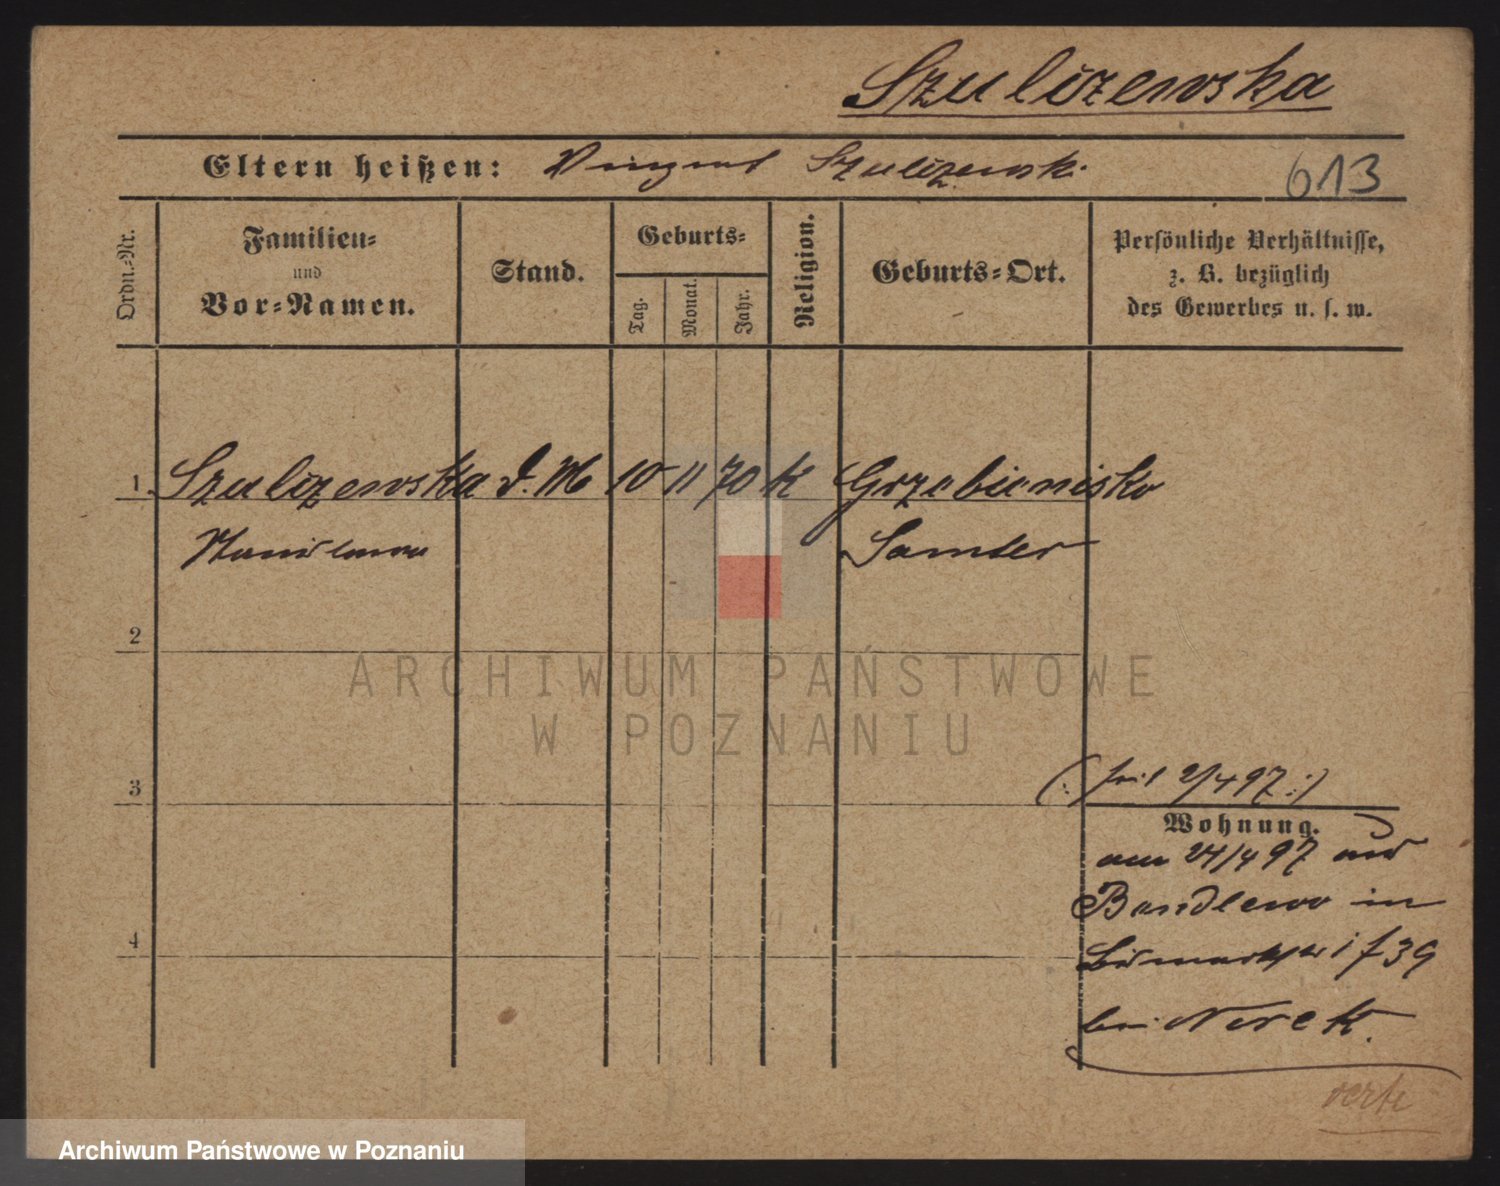 Szulizewska
Eltern heißen: Vinzent Szulizewsk.
613
Ordn.-Nr.
Familien- und Vor-Namen.
Stand.
Geburts-
Tag.
Monat.
Jahr.
Religion.
Geburts-Ort.
Persönliche Verhältnisse,
z. B. bezüglich
des Gewerbes u. s. w.
1 Szulizewska d. M 10 11 70 K Grzebienisko
Stanislawa Samter
2
3
4
(: seit 2/4 97 :)
Wohnung.
am 24/4 97 aus
Bendlewo in
Bismarckstr 1 f 39
bei Nerek.
verte
ARCHIWUM PAŃSTWOWE
W POZNANIU
Archiwum Państwowe w Poznaniu